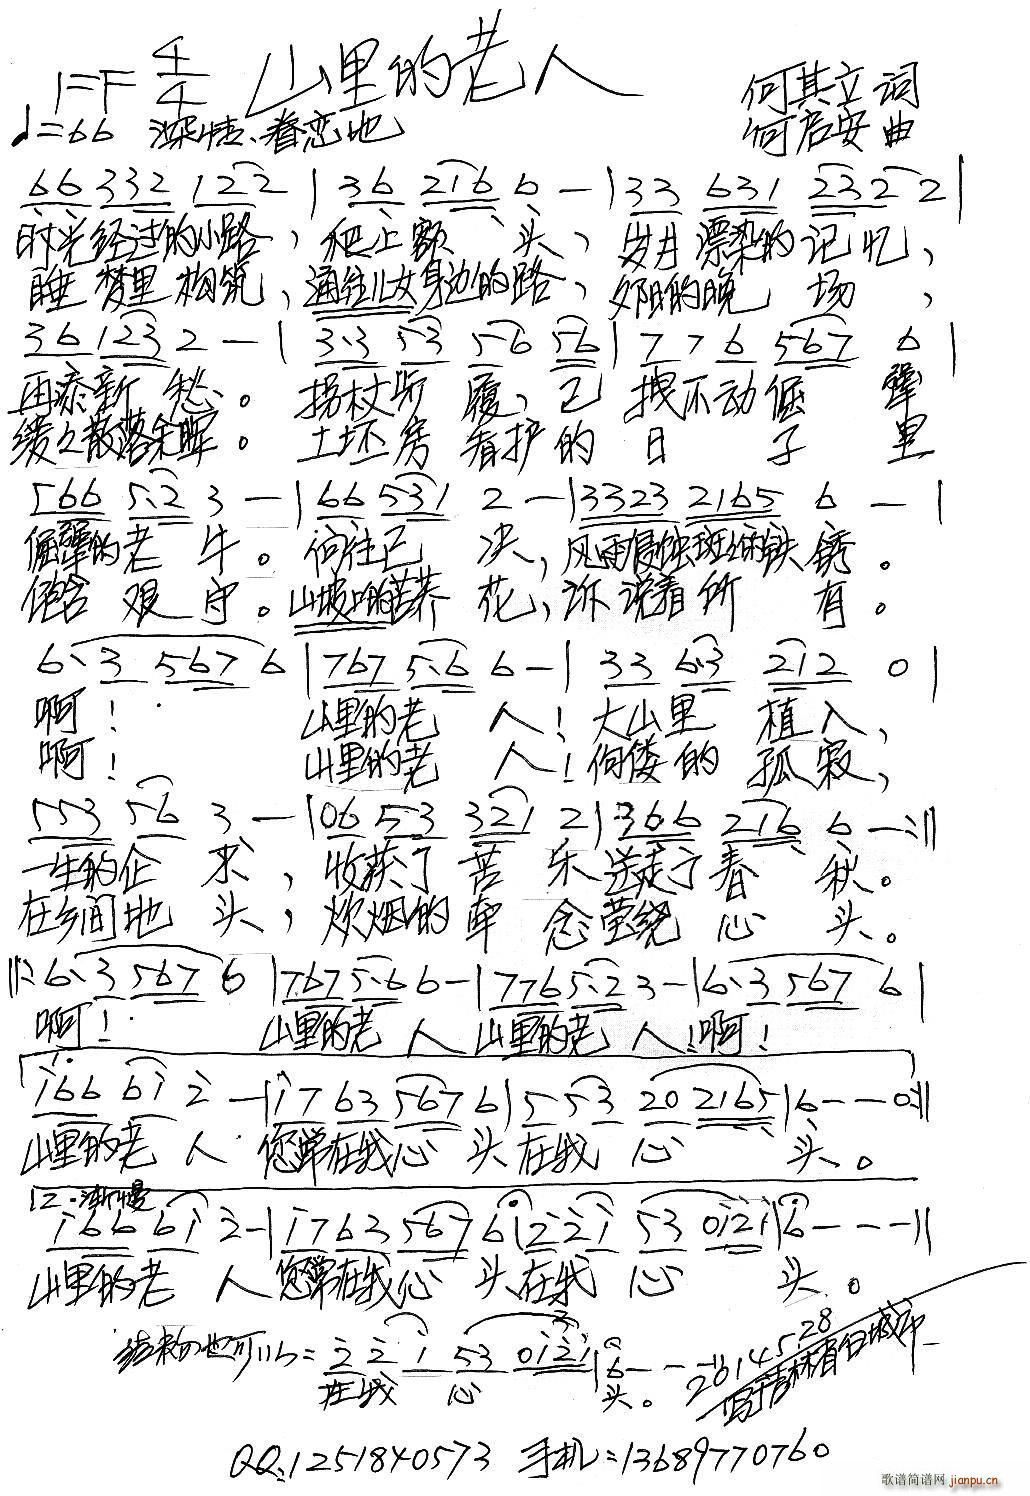 1=F 4/4 山里的老人
何其立 词
♩=66 深情、眷恋地
何启安 曲
66 332 122 | 36 216 6 - | 33 631 232 2 |
时光经过的小路，爬上额头，岁月漂染的记忆，
睡梦里构筑，通往儿女身边的路，夕阳的晚场，
36 123 2 - | 3·3 53 56 56 | 7 7 6 567 6 |
再添新愁。拐杖所履，已拽不动倔犟
缓缓散落余晖。土坯房看护的日子里
566 5·2 3 - | 66 531 2 - | 3323 2165 6 - |
倔犟的老牛。向往已决，风雨侵蚀斑斓铁锈。
饱含艰守。山坡的苦荞花，诉说着所有。
6·3 567 6 | 767 5·6 6 - | 33 6·3 212 0 |
啊！山里的老人！大山里植入，
啊！山里的老人！佝偻的孤寂，
553 56 3 - | 06 53 321 2 | 366 216 6 - :||
一生的企求，收获了苦乐送走了春秋。
在乡间地头，炊烟的牵念萦绕心头。
||: 6·3 567 6 | 767 5·6 6 - | 776 5·2 3 - | 6·3 567 6 |
啊！山里的老人山里的老人！啊！
1.
i66 6i 2 - | i763 567 6 | 5 53 20 2165 | 6 - - 0 :||
山里的老人您常在我心头在我心头。
2.渐慢
i66 6i 2 - | i763 567 6 | 2 2 i 53 0i2i | 6 - - - ||
山里的老人您常在我心头在我心头。
结束句也可以= 2 2 i 53 0i2i | 6 - - -||
在我心头。
2014 5 28
写于吉林省白城市
QQ:1251840573 手机=13689770760
歌谱简谱网 jianpu.cn